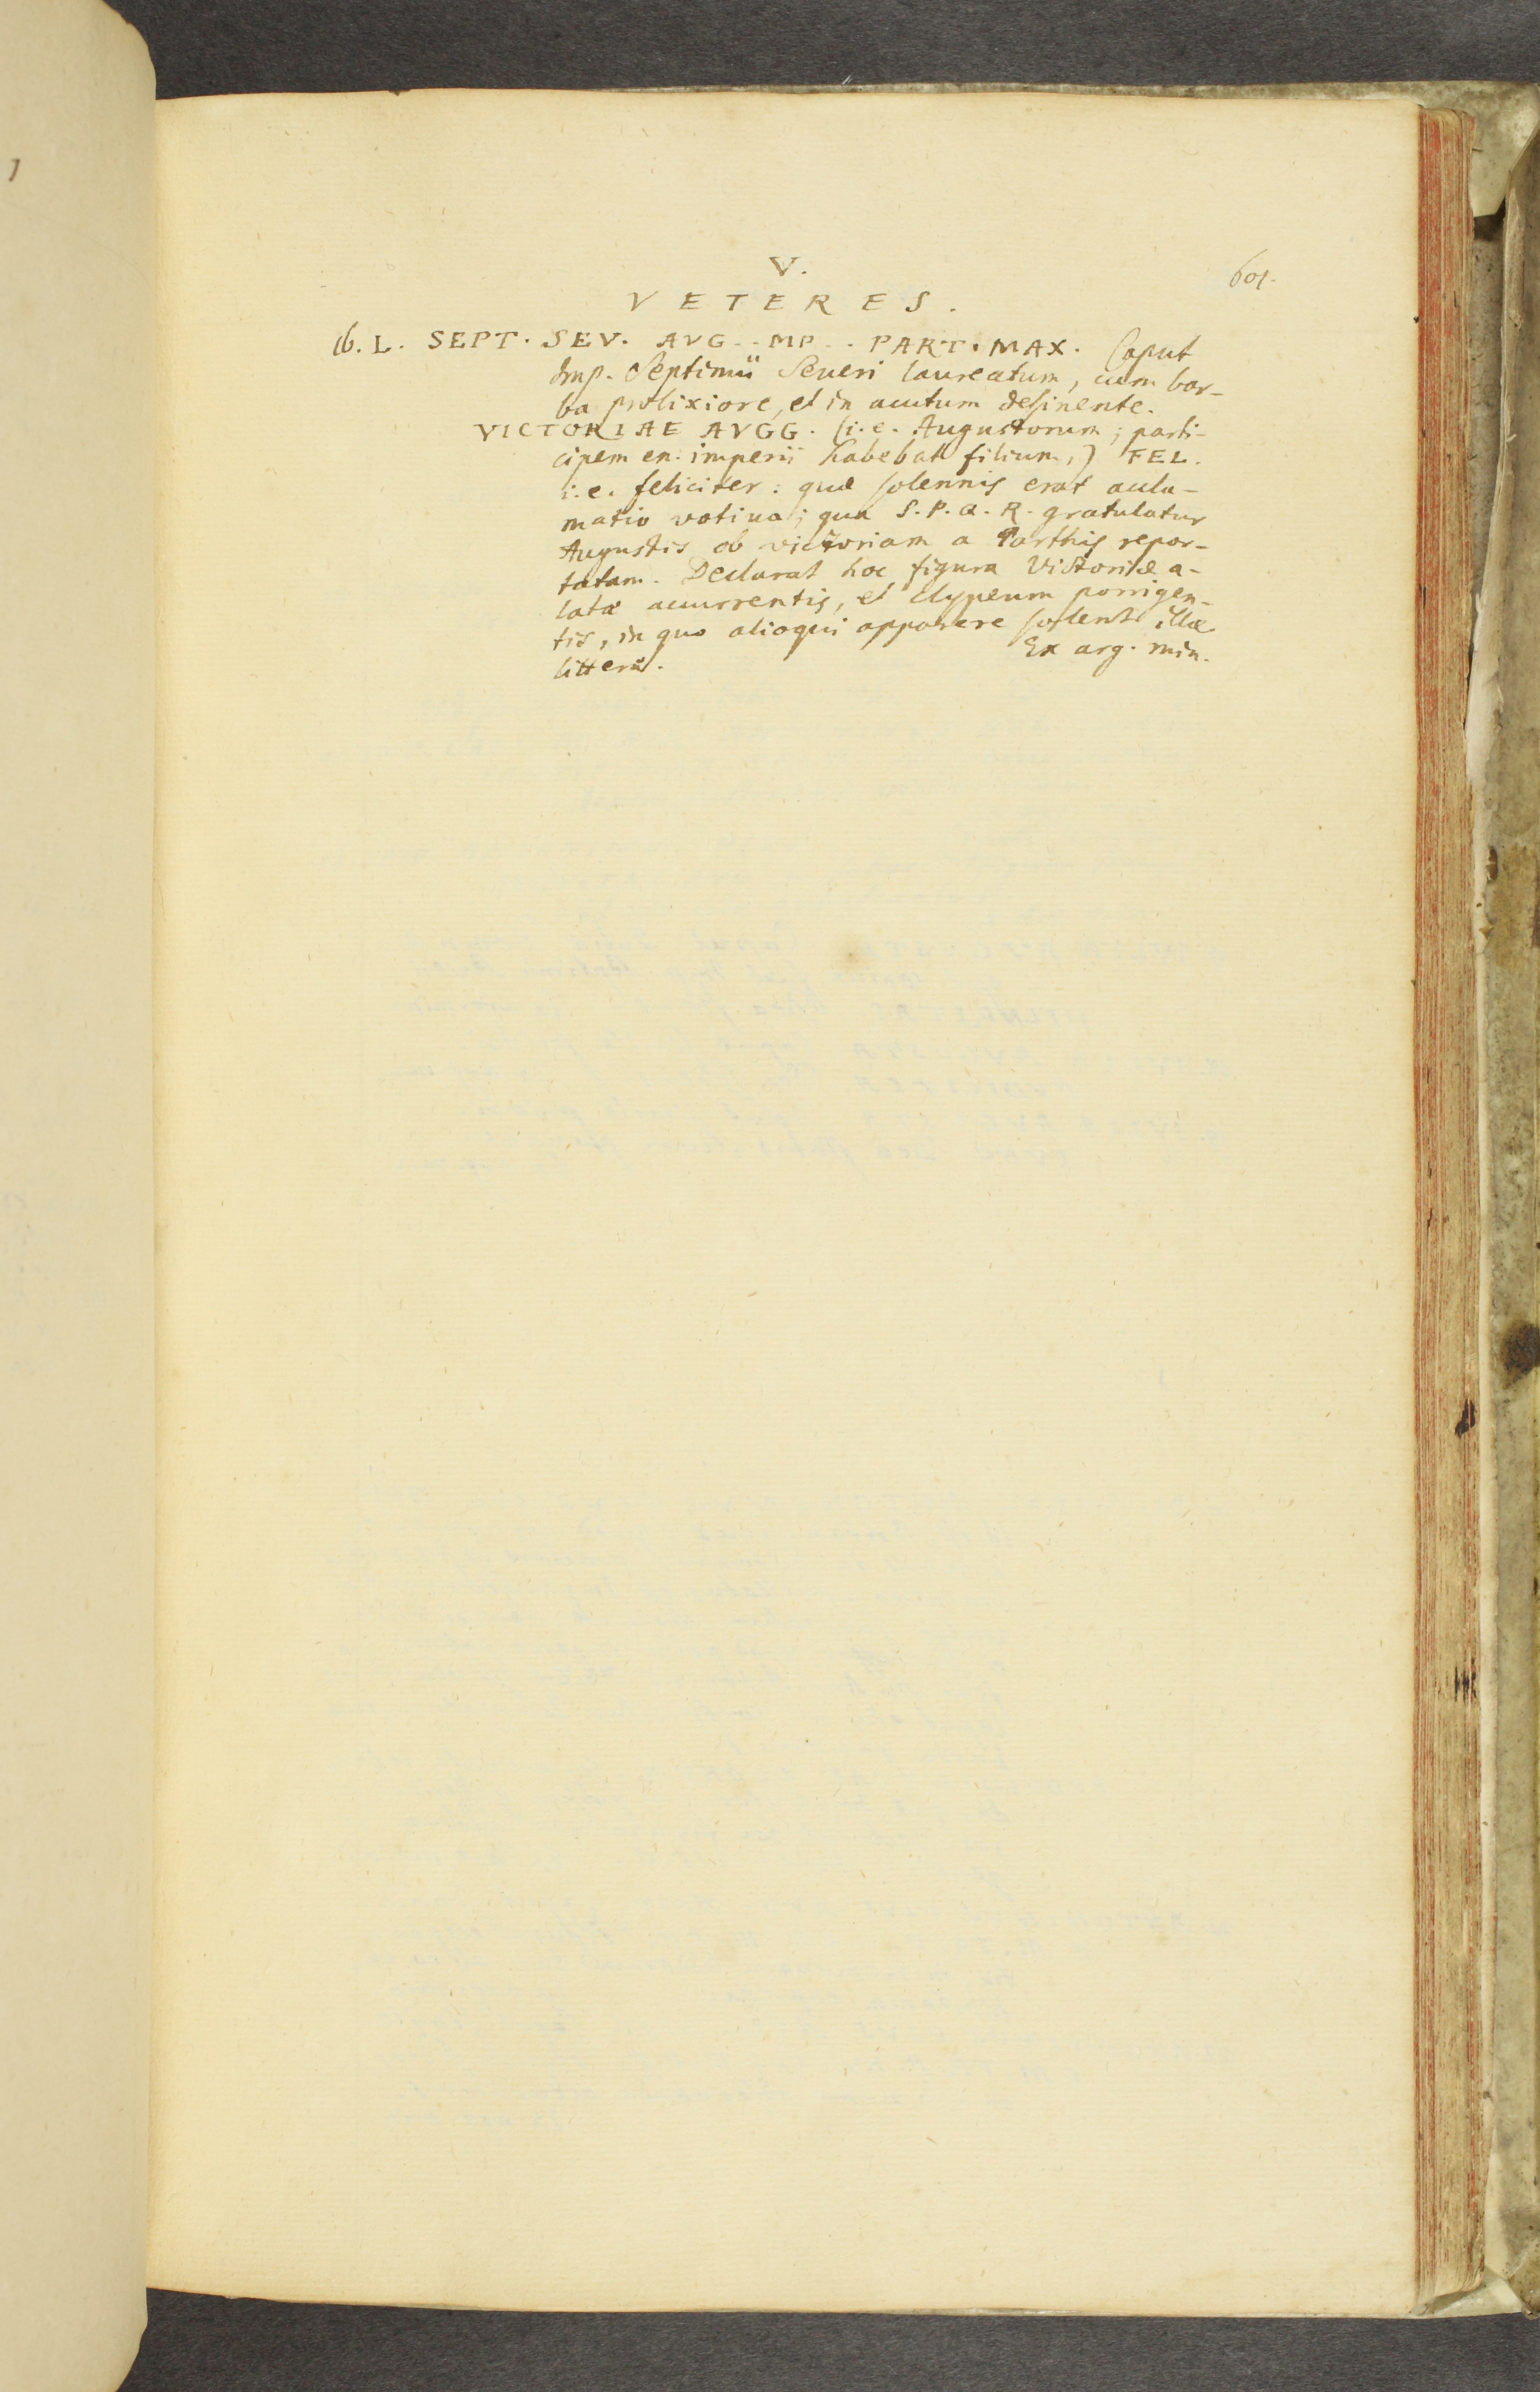 V.
601.
VETERES.
16. L. SEPT. SEV. AVG - - MP - - PART. MAX. Caput
Imp. Septimii Seueri laureatum, cum bar-
ba prolixiore, et in acutum desinente.
VICTORIAE AVGG. (i.e. Augustorum; parti-
cipem en. imperii habebat filium,) FEL.
i.e. feliciter: quæ solennis erat accla-
matio votiua; qua S.P.Q.R. gratulatur
Augustis ob victoriam a Parthis repor-
tatam. Declarat hoc figura Victoriæ a-
latæ accurrentis, et clypeum porrigen-
tis, in quo alioqui apponere solent illæ
litteræ. Ex arg. min.